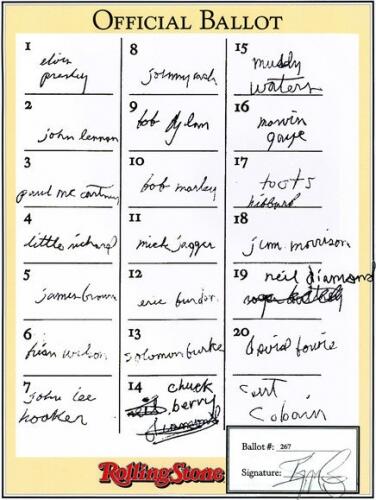 OFFICIAL BALLOT
1
elvis
presley
2
john lennon
3
paul mc cartney
4
little richard
5
james brown
6
brian wilson
7
John lee
hooker
8
johnny cash
9
bob dylan
10
bob marley
11
mick jagger
12
eric burdon
13
solomon burke
14
chuck
berry
15
muddy
waters
16
marvin
gaye
17
toots
hibbard
18
jim morrison
19
neil diamond
20
david bowie
curt
cobain
Ballot #: 267
Signature:
RollingStone